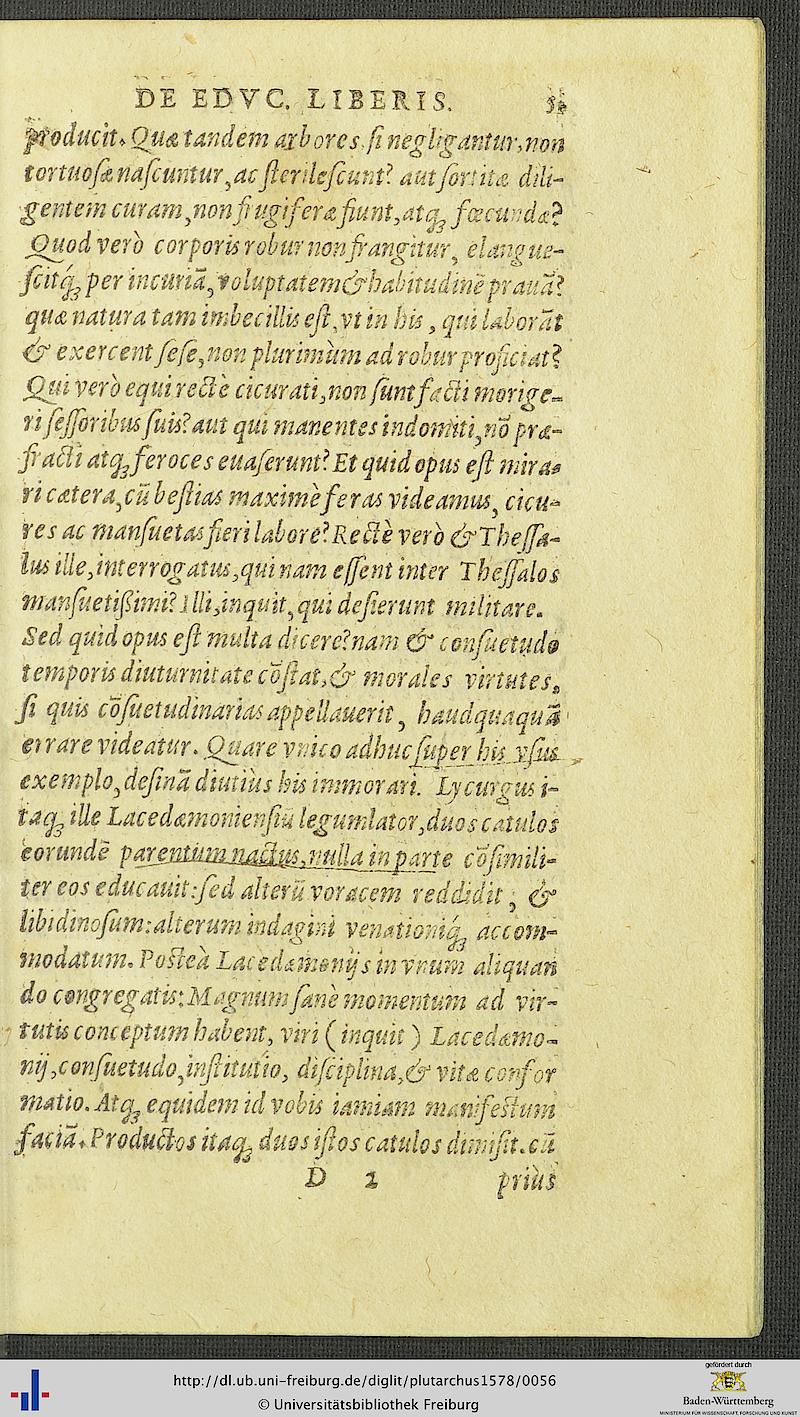 DE EDVC. LIBERIS.
producit. Quæ tandem arbores, si negligantur, non
tortuosæ nascuntur, ac sterilescunt? aut sortitæ dili-
gentem curam, non frugiferæ fiunt, atq; fœcundæ?
Quod verò corporis robur non frangitur, elangue-
scitq́; per incuriā, voluptatem & habitudinē prauā?
quæ natura tam imbecillis est, vt in his, qui laborāt
& exercent sese, non plurimùm ad robur proficiat?
Qui verò equi rectè cicurati, non sunt facti morige-
ri sessoribus suis? aut qui manentes indomiti, nō præ-
fracti atq; feroces euaserunt? Et quid opus est mira-
ri cætera, cū bestias maximè feras videamus, cicu-
res ac mansuetas fieri labore? Rectè verò & Thessa-
lus ille, interrogatus, qui nam essent inter Thessalos
mansuetißimi? Illi, inquit, qui desierunt militare.
Sed quid opus est multa dicere? nam & consuetudo
temporis diuturnitate cōstat, & morales virtutes,
si quis cōsuetudinarias appellauerit, haudquaquā
errare videatur. Quare vnico adhuc super his vsus
exemplo, desinā diutiùs his immorari. Lycurgus i-
taq; ille Lacedæmoniensiū legumlator, duos catulos
eorundē parentum nactus, nulla in parte cōsimili-
ter eos educauit: sed alterū voracem reddidit, &
libidinosum: alterum indagini venationiq́; accom-
modatum. Posteà Lacedæmonijs in vnum aliquan
do congregatis: Magnum sanè momentum ad vir-
tutis conceptum habent, viri (inquit) Lacedæmo-
nij, consuetudo, institutio, disciplina, & vitæ confor
matio. Atq; equidem id vobis iamiam manifestum
faciā. Productos itaq; duos istos catulos dimisit. cū
D 2 priùs
http://dl.ub.uni-freiburg.de/diglit/plutarchus1578/0056
© Universitätsbibliothek Freiburg
gefördert durch
Baden-Württemberg
MINISTERIUM FÜR WISSENSCHAFT, FORSCHUNG UND KUNST